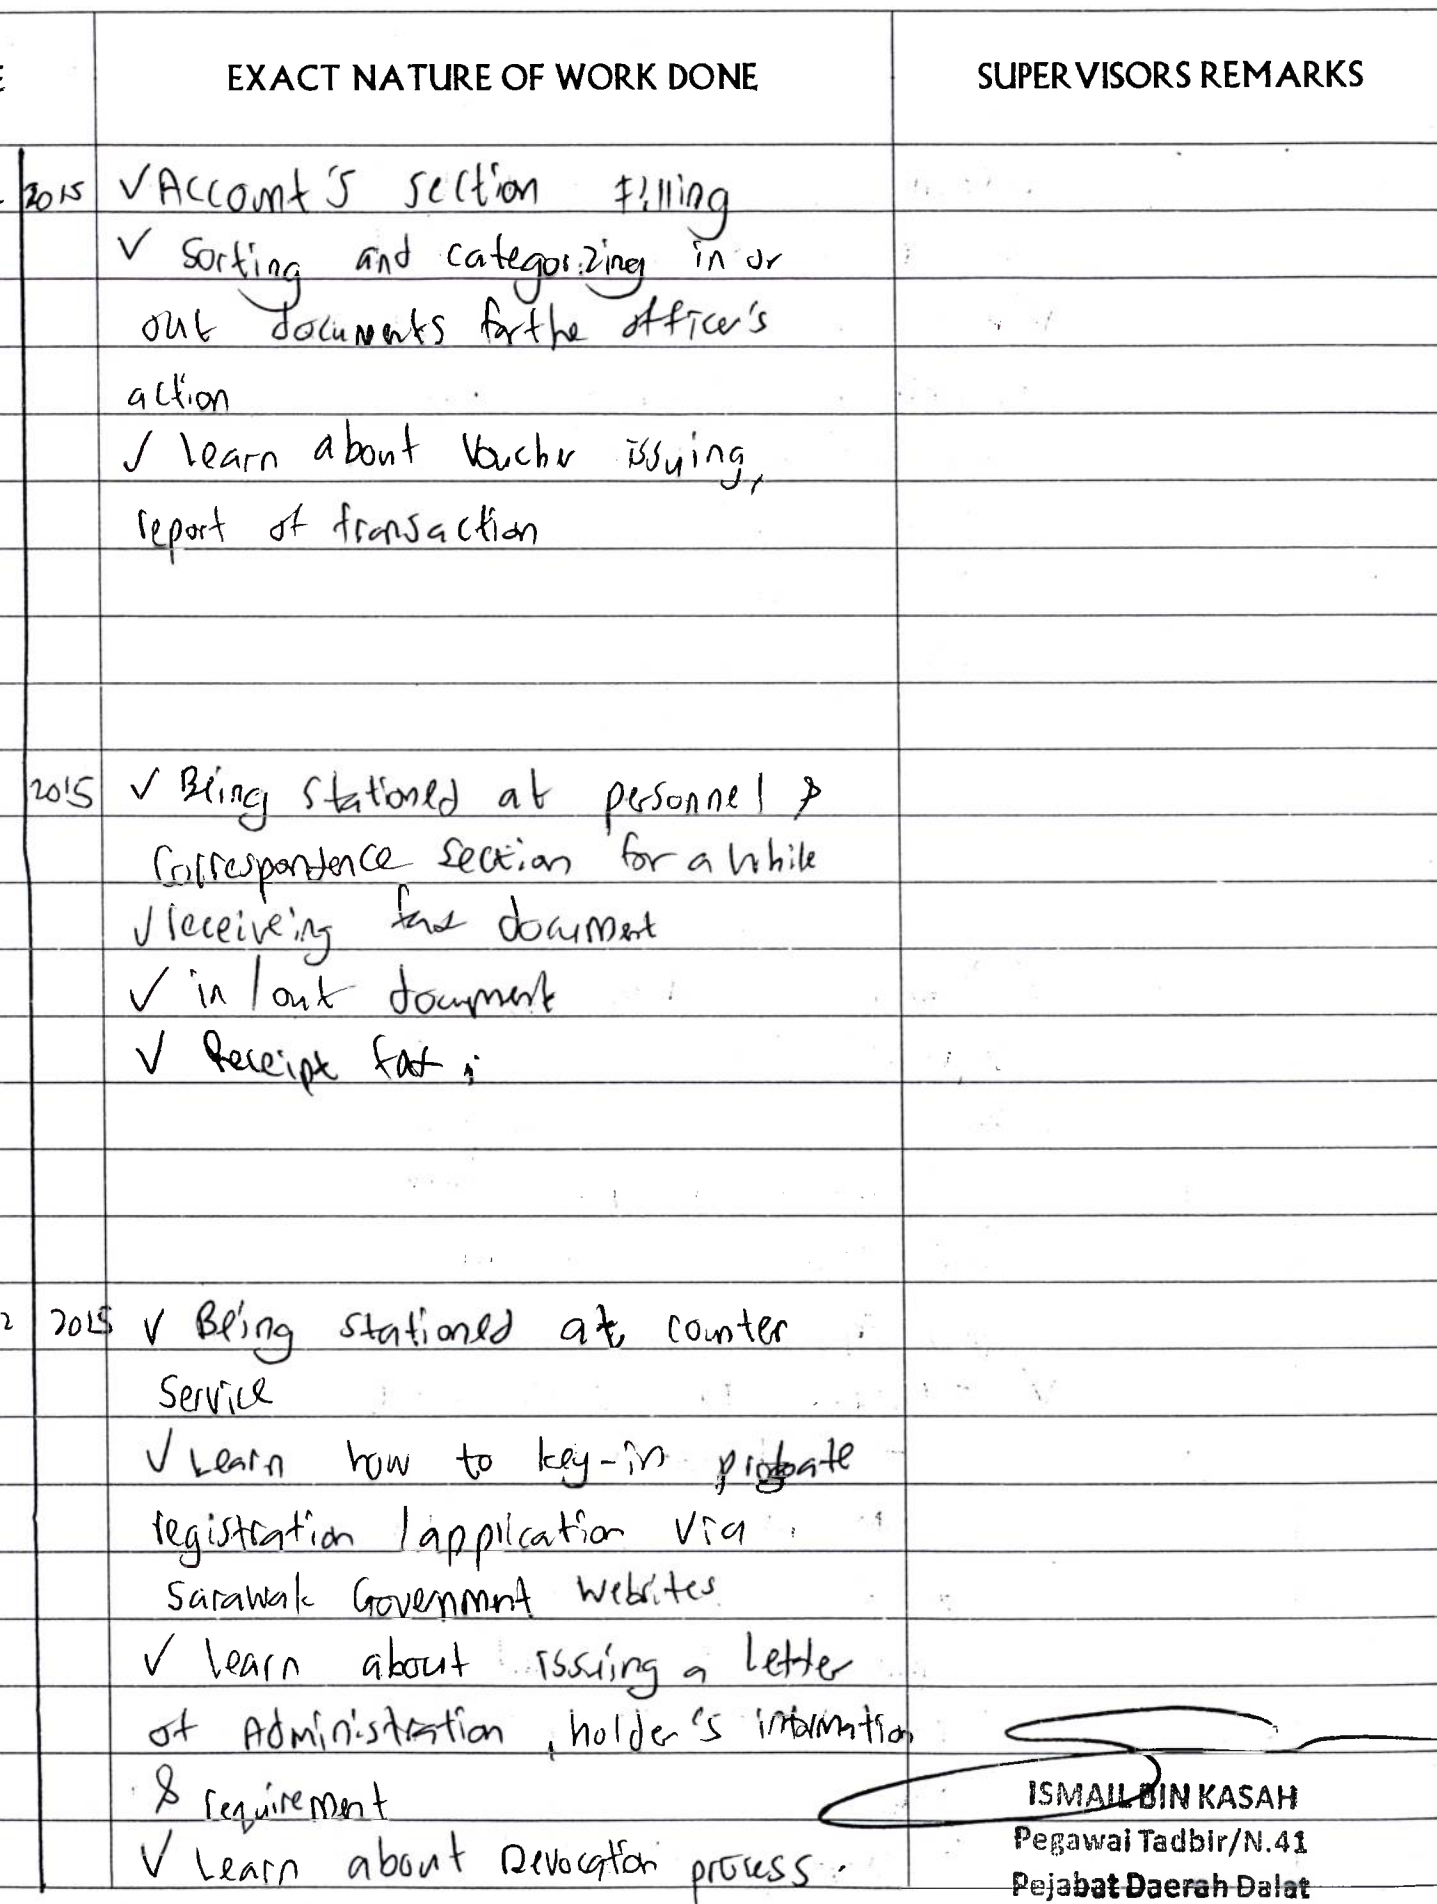 EXACT NATURE OF WORK DONE SUPERVISORS REMARKS
2015 ✓ Account's section filling
✓ Sorting and categorizing in or
out documents for the officer's
action
✓ learn about Voucher issuing,
report of transaction
2015 ✓ Being stationed at personnel &
Correspondence section for a while
✓ receiveing document
✓ in / out document
✓ Receipt
2 2015 ✓ Being stationed at counter
Service
✓ Learn how to key-in probate
registration / application via
Sarawak Government Websites
✓ learn about issuing a Letter
of Administration, holder's information
& requirement
✓ Learn about Revocation process.
ISMAIL BIN KASAH
Pegawai Tadbir/N.41
Pejabat Daerah Dalat